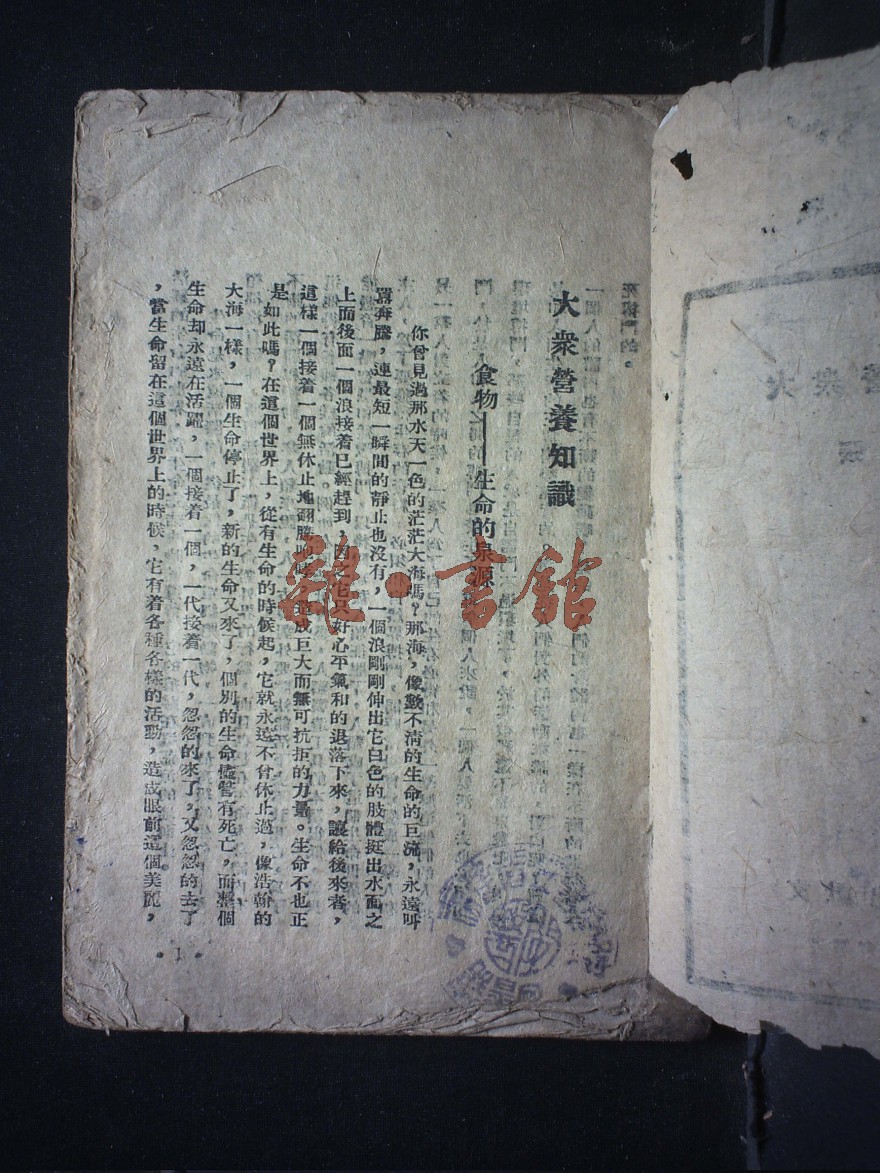 大衆營養知識
食物——生命的泉源
你曾見過那水天一色的茫茫大海嗎？那海，像數不清的生命的巨流，永遠叫
囂奔騰，連最短一瞬間的靜止也沒有，一個浪剛剛伸出它白色的肢體挺出水面之
上而後面一個浪接着已經趕到，因之它只好心平氣和的退落下來，讓給後來者，
這樣一個接着一個無休止地翻騰
成巨大而無可抗拒的力量。生命不也正
是如此嗎？在這個世界上，從有生命的時候起，它就永遠不曾休止過，像浩翰的
大海一樣，一個生命停止了，新的生命又來了，個別的生命儘管有死亡，而整個
生命却永遠在活躍，一個接着一個，一代接着一代，忽忽的來了，又忽忽的去了
，當生命留在這個世界上的時候，它有着各種各樣的活動，造成眼前這個美麗，
•1•
雜·書館